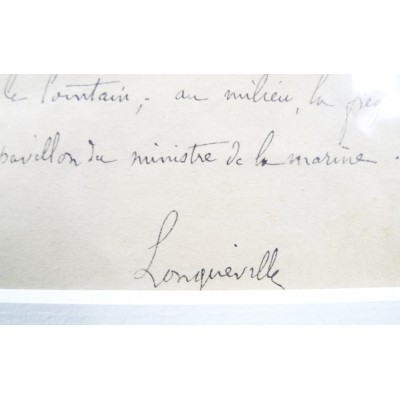 le lointain ; au milieu, la frég
pavillon du ministre de la marine.
Longueville